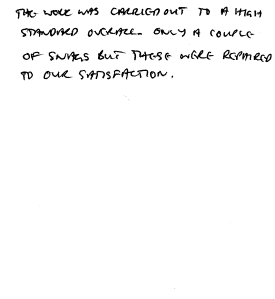 THE WORK WAS CARRIED OUT TO A HIGH
STANDARD OVERALL. ONLY A COUPLE
OF SNAGS BUT THESE WERE REPAIRED
TO OUR SATISFACTION.